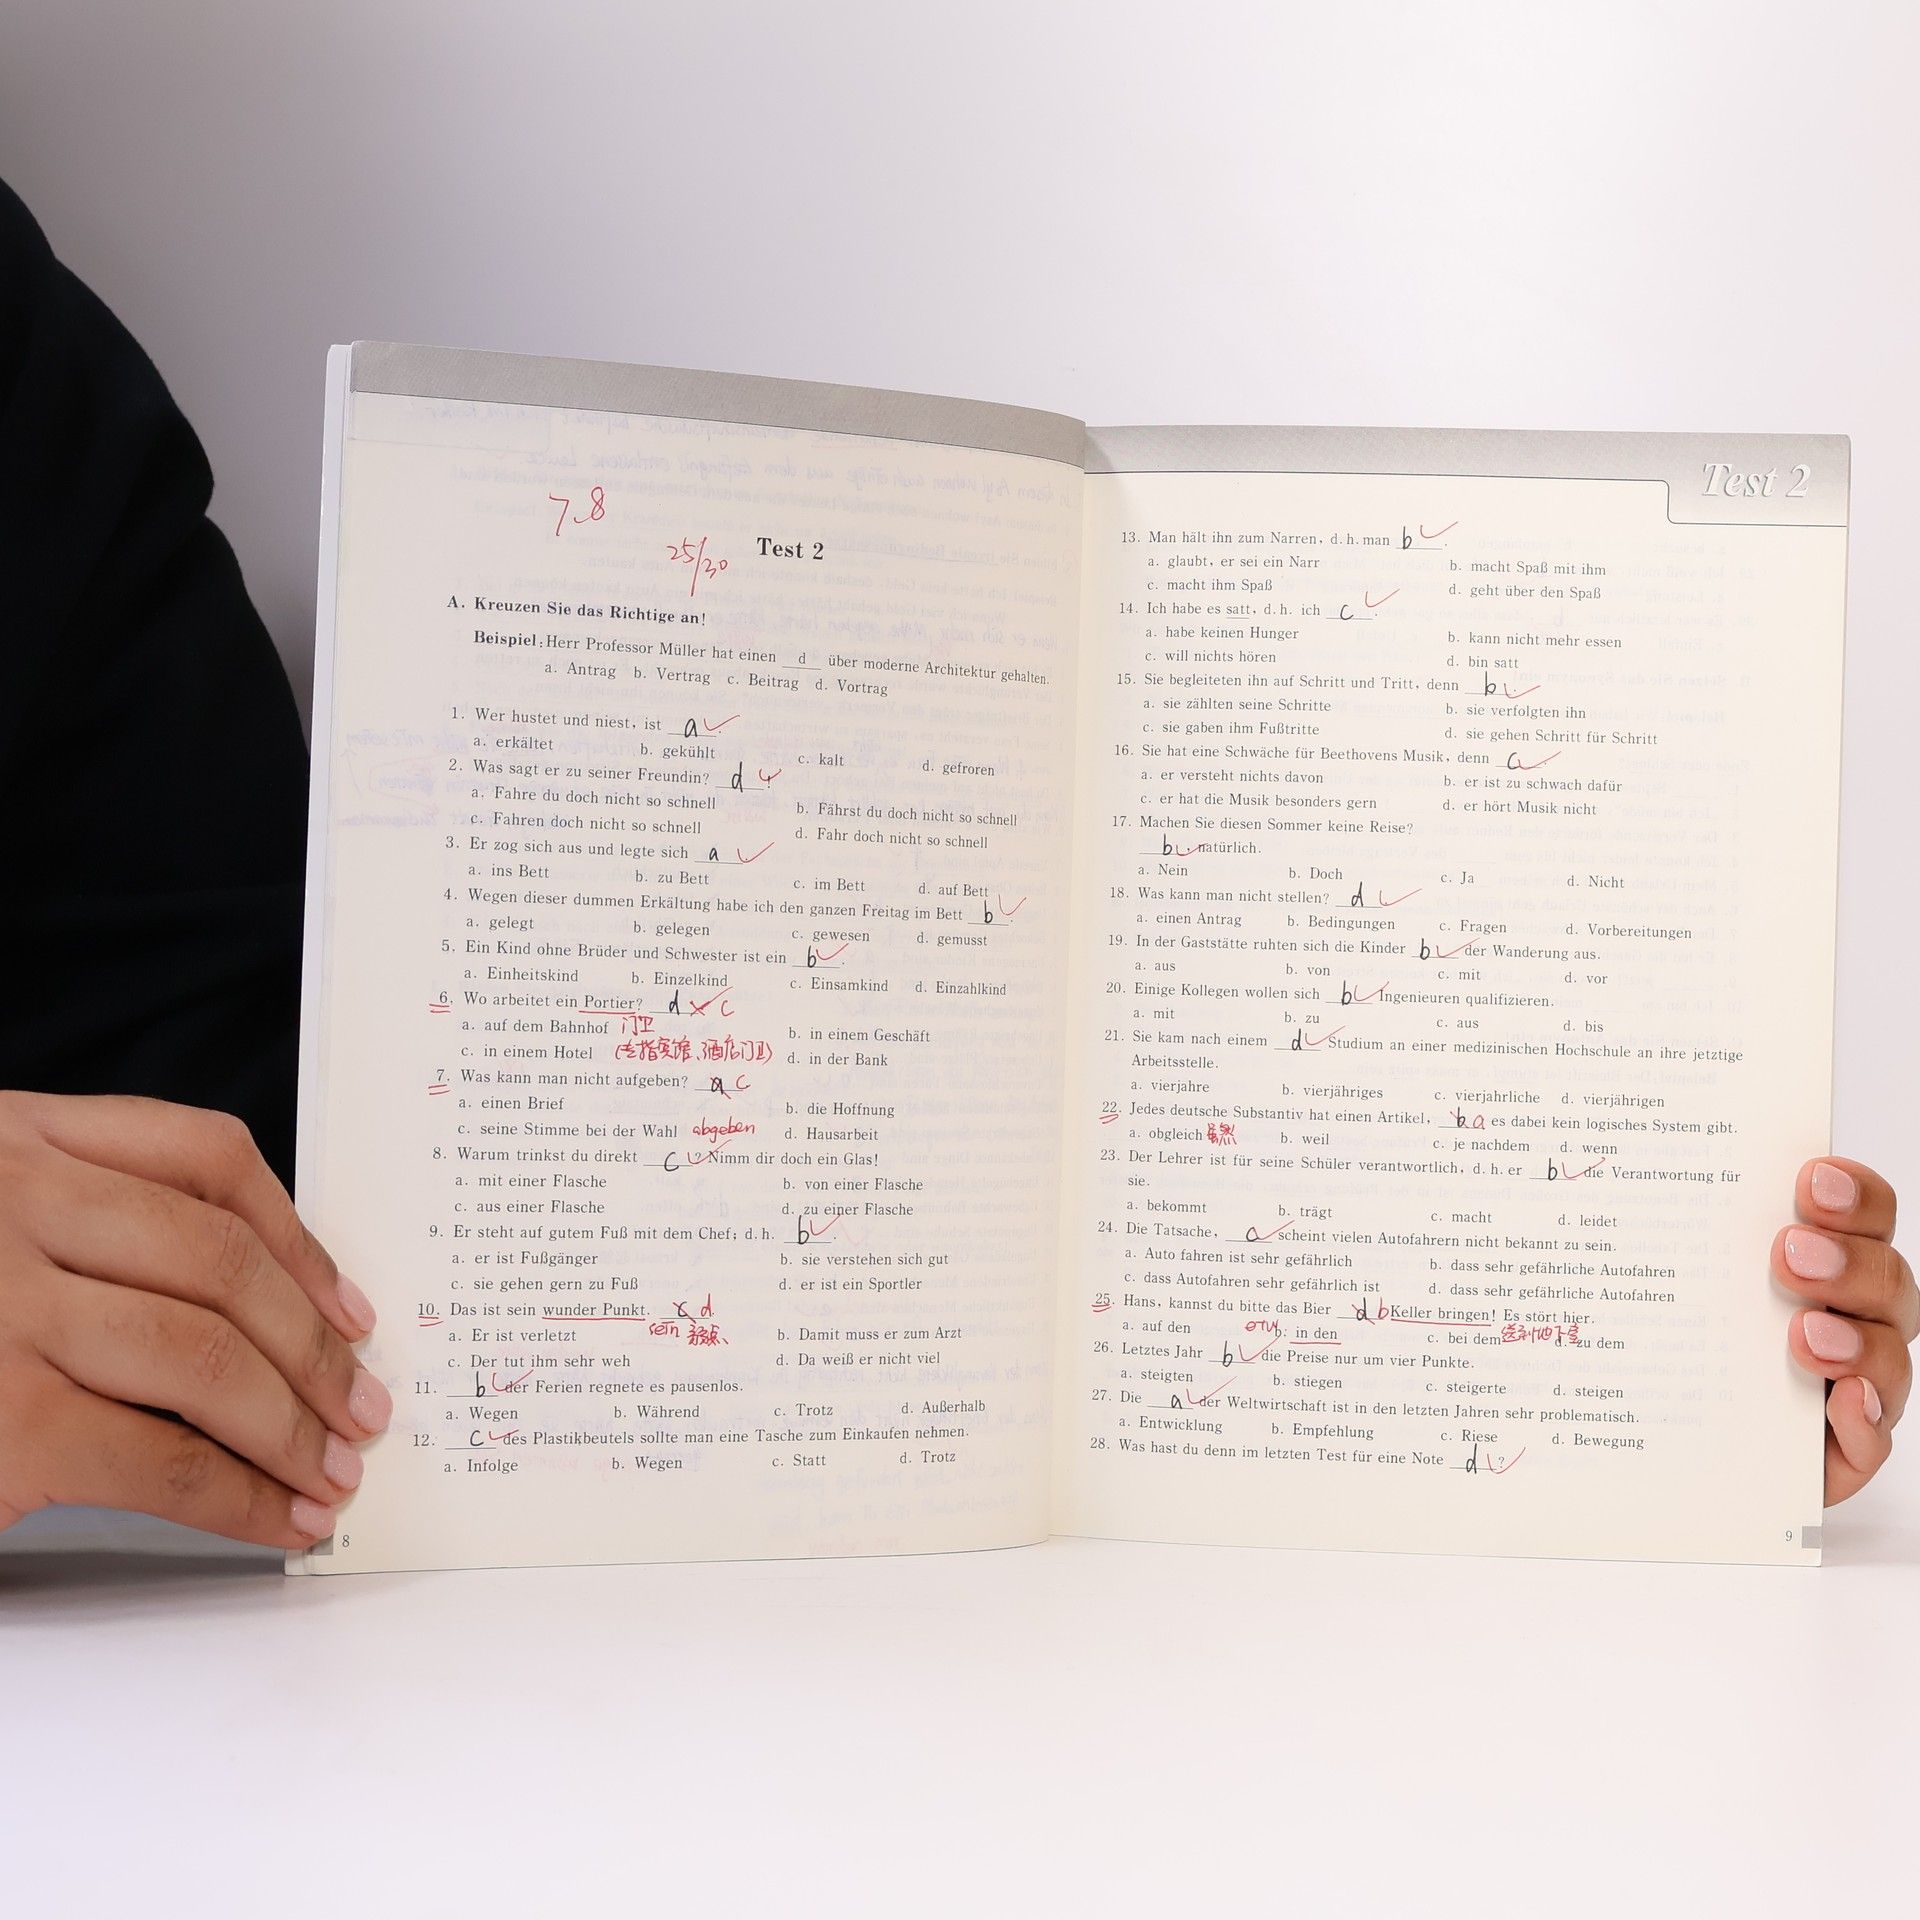 7.8
25/30
Test 2
A. Kreuzen Sie das Richtige an!
Beispiel: Herr Professor Müller hat einen d über moderne Architektur gehalten.
a. Antrag b. Vertrag c. Beitrag d. Vortrag
1. Wer hustet und niest, ist a.
a. erkältet b. gekühlt c. kalt d. gefroren
2. Was sagt er zu seiner Freundin? d!
a. Fahre du doch nicht so schnell b. Fährst du doch nicht so schnell
c. Fahren doch nicht so schnell d. Fahr doch nicht so schnell
3. Er zog sich aus und legte sich a.
a. ins Bett b. zu Bett c. im Bett d. auf Bett
4. Wegen dieser dummen Erkältung habe ich den ganzen Freitag im Bett b.
a. gelegt b. gelegen c. gewesen d. gemusst
5. Ein Kind ohne Brüder und Schwester ist ein b.
a. Einheitskind b. Einzelkind c. Einsamkind d. Einzahlkind
6. Wo arbeitet ein Portier? d c
a. auf dem Bahnhof 门卫 b. in einem Geschäft
c. in einem Hotel (专指宾馆、酒店门卫) d. in der Bank
7. Was kann man nicht aufgeben? a c
a. einen Brief b. die Hoffnung
c. seine Stimme bei der Wahl abgeben d. Hausarbeit
8. Warum trinkst du direkt c? Nimm dir doch ein Glas!
a. mit einer Flasche b. von einer Flasche
c. aus einer Flasche d. zu einer Flasche
9. Er steht auf gutem Fuß mit dem Chef; d.h. b.
a. er ist Fußgänger b. sie verstehen sich gut
c. sie gehen gern zu Fuß d. er ist ein Sportler
10. Das ist sein wunder Punkt. c d.
sein 弱点
a. Er ist verletzt b. Damit muss er zum Arzt
c. Der tut ihm sehr weh d. Da weiß er nicht viel
11. b der Ferien regnete es pausenlos.
a. Wegen b. Während c. Trotz d. Außerhalb
12. c des Plastikbeutels sollte man eine Tasche zum Einkaufen nehmen.
a. Infolge b. Wegen c. Statt d. Trotz
8
Test 2
13. Man hält ihn zum Narren, d.h. man b.
a. glaubt, er sei ein Narr b. macht Spaß mit ihm
c. macht ihm Spaß d. geht über den Spaß
14. Ich habe es satt, d.h. ich c.
a. habe keinen Hunger b. kann nicht mehr essen
c. will nichts hören d. bin satt
15. Sie begleiteten ihn auf Schritt und Tritt, denn b.
a. sie zählten seine Schritte b. sie verfolgten ihn
c. sie gaben ihm Fußtritte d. sie gehen Schritt für Schritt
16. Sie hat eine Schwäche für Beethovens Musik, denn c.
a. er versteht nichts davon b. er ist zu schwach dafür
c. er hat die Musik besonders gern d. er hört Musik nicht
17. Machen Sie diesen Sommer keine Reise?
b, natürlich.
a. Nein b. Doch c. Ja d. Nicht
18. Was kann man nicht stellen? d
a. einen Antrag b. Bedingungen c. Fragen d. Vorbereitungen
19. In der Gaststätte ruhten sich die Kinder b der Wanderung aus.
a. aus b. von c. mit d. vor
20. Einige Kollegen wollen sich b Ingenieuren qualifizieren.
a. mit b. zu c. aus d. bis
21. Sie kam nach einem d Studium an einer medizinischen Hochschule an ihre jetztige
Arbeitsstelle.
a. vierjahre b. vierjähriges c. vierjahrliche d. vierjährigen
22. Jedes deutsche Substantiv hat einen Artikel, b a es dabei kein logisches System gibt.
a. obgleich 虽然 b. weil c. je nachdem d. wenn
23. Der Lehrer ist für seine Schüler verantwortlich, d.h. er b die Verantwortung für
sie.
a. bekommt b. trägt c. macht d. leidet
24. Die Tatsache, a scheint vielen Autofahrern nicht bekannt zu sein.
a. Auto fahren ist sehr gefährlich b. dass sehr gefährliche Autofahren
c. dass Autofahren sehr gefährlich ist d. dass sehr gefährliche Autofahren
25. Hans, kannst du bitte das Bier d b Keller bringen! Es stört hier.
a. auf den etw b. in den c. bei dem 送到地下室 d. zu dem
26. Letztes Jahr b die Preise nur um vier Punkte.
a. steigten b. stiegen c. steigerte d. steigen
27. Die a der Weltwirtschaft ist in den letzten Jahren sehr problematisch.
a. Entwicklung b. Empfehlung c. Riese d. Bewegung
28. Was hast du denn im letzten Test für eine Note d?
9